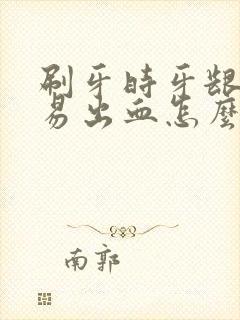 刷牙時牙龈
易出血怎麼
南郭